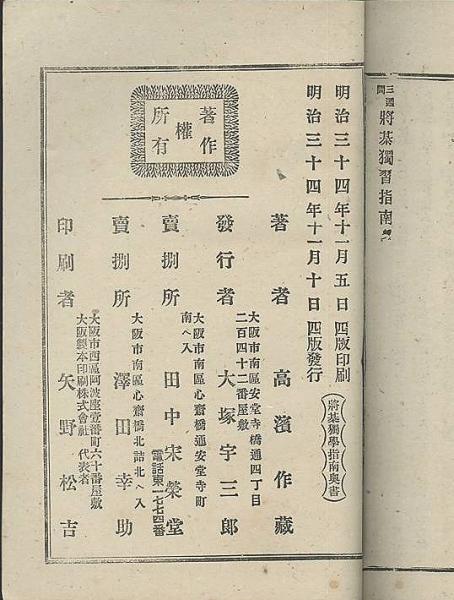 將棊獨習指南
明治三十四年十一月五日四版印刷
明治三十四年十一月十日四版發行
將棊獨學指南奥書
著作權所有
著者 高濱作藏
大阪市南區安堂寺橋通四丁目
二百四十二番屋敷
發行者 大塚宇三郎
大阪市南區心齋橋通安堂寺町
南へ入
賣捌所 田中宋榮堂
電話東一七七四番
大阪市南區心齋橋北詰北へ入
賣捌所 澤田幸助
大阪市西區阿波座壹番町六十番屋敷
大阪製本印刷株式會社代表者
印刷者 矢野松吉